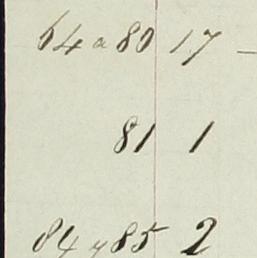 64 a 80 17 —
81 1
84 y 85 2